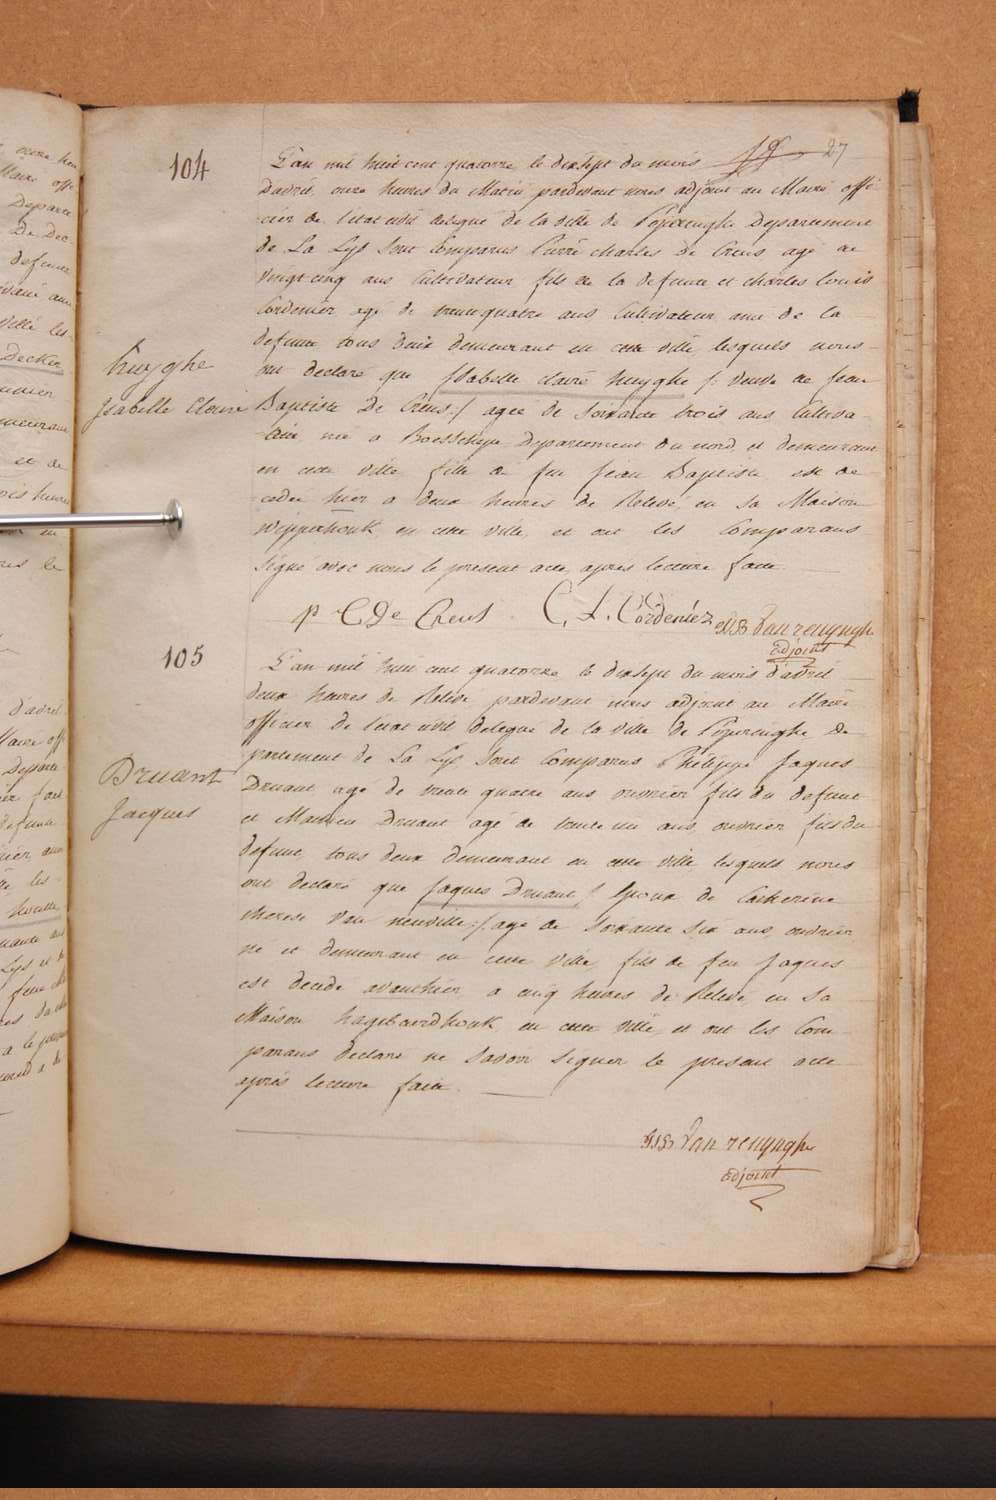 27
104
L'an mil huit cent quatorze le dix sept du mois
D'avril, onze heures du Matin pardevant nous adjoint au Maire offi-
cier de l'etat civil delegué de la ville de Poperinghe Departement
de La Lys sont Comparus Pierre charles De Creus agé de
vingt cinq ans Cultivateur fils de la defunte et charles Louis
Cordenier agé de trente quatre ans Cultivateur ami de la
defunte tous deux demeurant en cette ville, lesquels nous
ont declaré que Isabelle claire huyghe /: veuve de Jean
Baptiste De Creus :/ agée de soixante trois ans Cultiva-
trice née a Boesschepe Departement du nord, et demeurant
en cette ville fille de feu Jean Baptiste est de-
cedée hier a deux heures de Relevé, en sa Maison
Wipperhouk, en cette ville, et ont les Comparans
signé avec nous le present acte, après lecture faite
huyghe
Isabelle Claire
p C De Creus
C. L. Cordeniez
Van renynghe
adjoint
105
L'an mil huit cent quatorze le dix sept du mois d'avril
deux heures de Relevé pardevant nous adjoint au Maire
officier de l'etat civil delegué de la ville de Poperinghe De-
partement de La Lys sont Comparus Philippe Jaques
Druant agé de trente quatre ans ouvrier fils du defunt
et Mathieu Druant agé de trente un ans, ouvrier fils du
defunt, tous deux demeurant en cette ville lesquels nous
ont declaré que Jaques Druant /: Epoux de Catherine
therese Van neuville :/ agé de soixante six ans, ouvrier
né et demeurant en cette ville, fils de feu Jaques
est decedé avanthier a cinq heures de Relevé, en sa
Maison hagebaerdhouk en cette ville, et ont les Com-
parans declaré ne savoir signer le present acte
après lecture faite.
Druant
Jacques
Van renynghe
adjoint